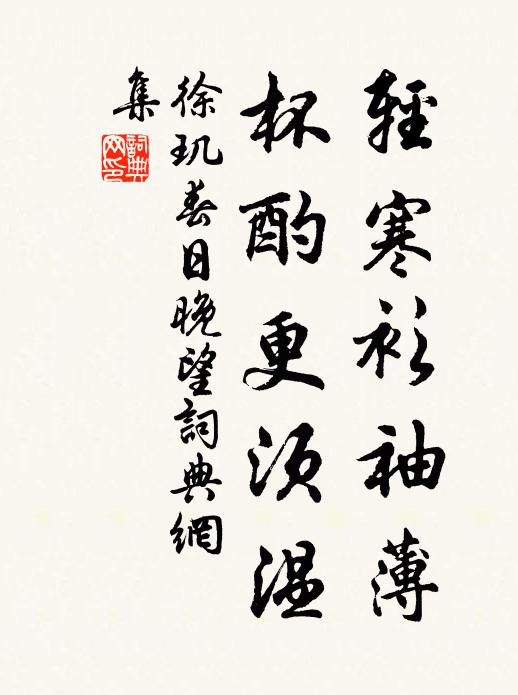 輕寒衫袖薄
杯酌更須溫
徐玑春日晚望詞典網
集
詞典網印